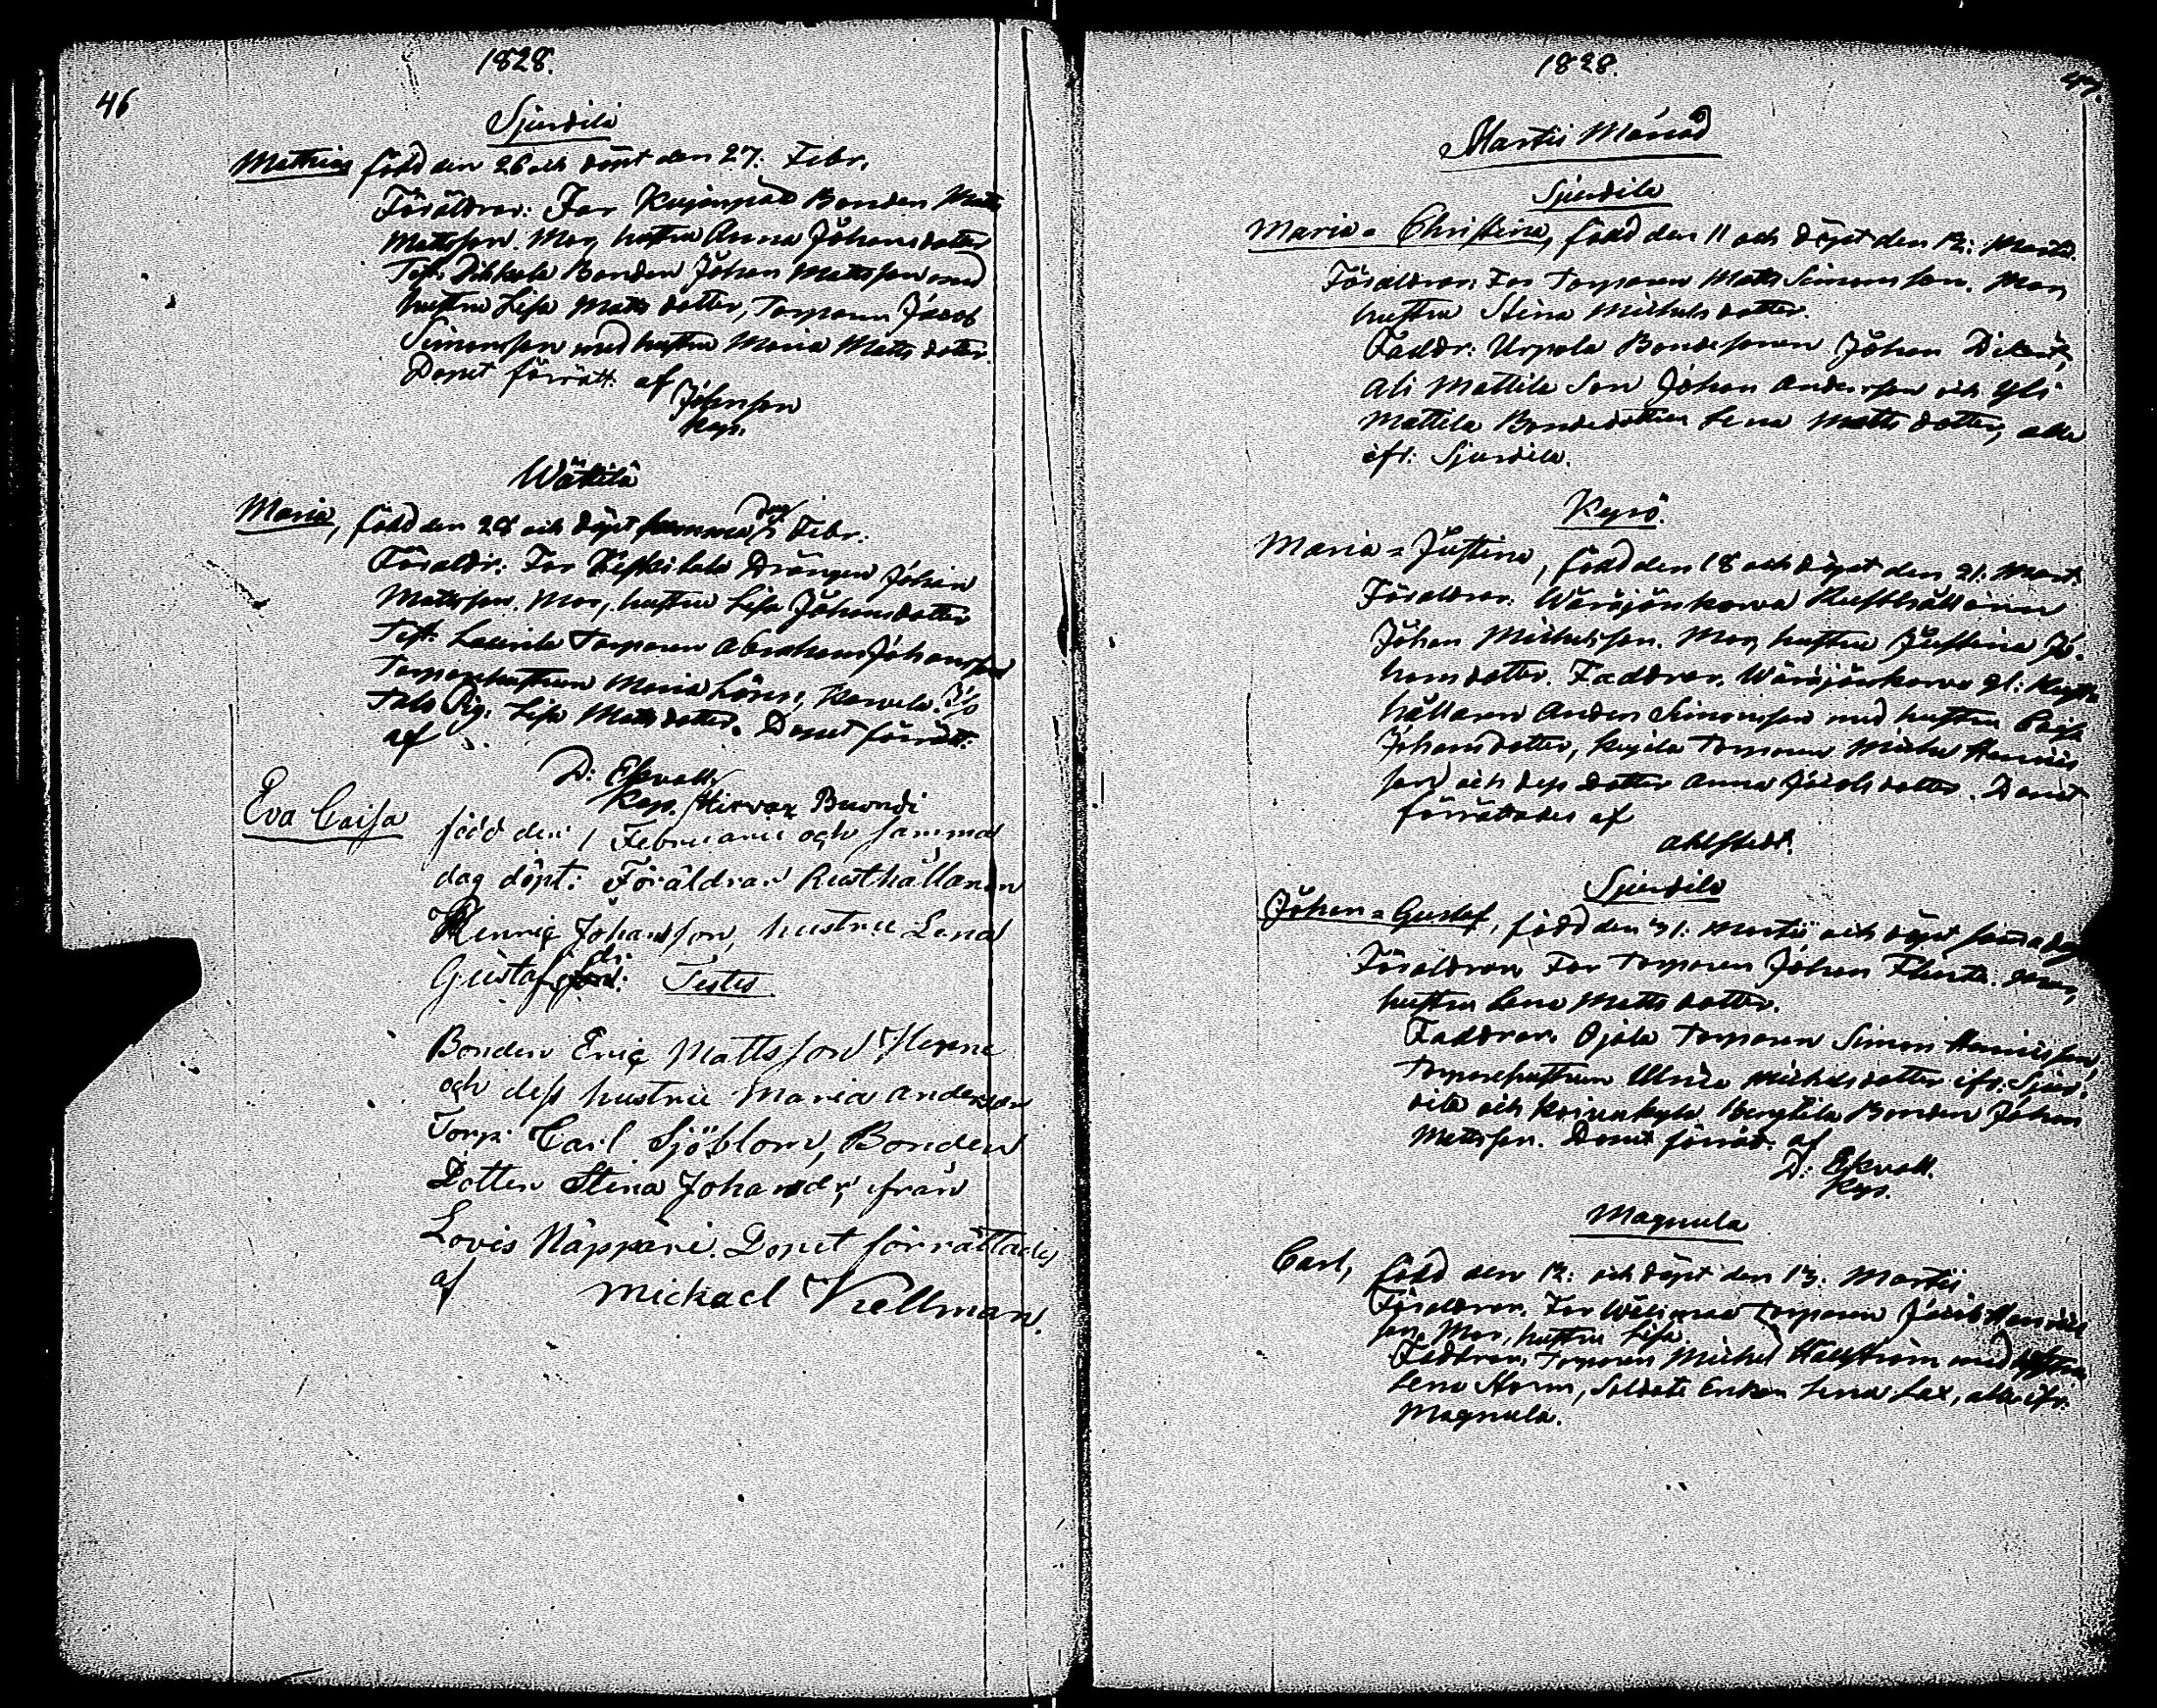 1828.
46
Sjundila
Mathias född den 26 och döpt den 27. Febr.
Föräldrar: Far Bonden Matts
Mattsson. Mor, hustru Anna Johansdotter
Test. Dikkala Bonden Johan Mattsson med
hustru Lisa Matts dotter, Torparen Jacob
Simonsson med hustru Maria Matts dotter.
Dopet förrätt. af
Johnson
Kap.
Wättilä
Maria, född den 28 och döpt samma dag Febr.
Föräldr: Far Drängen Johan
Mattsson. Mor, hustru Lisa Johansdotter
Test. Laurila Torparen Abraham Johansson
Torparehustrun Maria
Pig. Lisa Matts dotter. Dopet förrätt.
af
D: Ekvall
Kap.
Eva Caisa född den 1 Februarii och samma
dag döpt. Föräldrar Rusthållaren
Henric Johansson, hustru Lena
Gustafsdr: Testes
Bonden Eric Mattsson
och dess hustru Maria Andersdr
Torp. Carl Sjöblom, Bonden
Dotter Stina Johansdr, ifrån
Lovis Näppäri. Dopet förrättades
af Michael Kellman.
1828.
47.
Martii Månad
Sjundila
Maria = Christina, född den 11 och döpt den 12: Martii.
Föräldrar: Far Torparen Matts Simonsson. Mor,
hustru Stina Michelsdotter.
Faddr: Urpola Bondesonen Johan
Ali Mattila Son Johan Andersson och Yli
Mattila Bondedotter Lena Matts dotter, alla
ifr: Sjundila.
Kyrö.
Maria = Justina, född den 18 och döpt den 21. Mart.
Föräldrar: Rusthållaren
Johan Michelsson. Mor, hustru Justina Jo-
hansdotter. Faddrar. gl: Rust-
hållaren Anders Simonsson med hustru
Johansdotter, Torparen Michel Henrics
son och dess dotter Anna Jacobsdotter. Dopet
förrättades af
Ahlstedt.
Sjundila
Johan = Gustaf, född den 31. Martii och döpt samma dag
Föräldrar: Far Torparen Johan Mor,
hustru Lena Matts dotter.
Faddrar. Ojala Torparen Simon Henricsson,
Torparehustrun Ulrica Michelsdotter ifr. Sjun-
dila och Bergtila Bonden Johan
Mattsson. Dopet förrät. af
D: Ekvall.
Kap.
Magnula
Carl, född den 12: och döpt den 13. Martii
Föräldrar. Far Torparen Jacob Henrics
son. Mor, hustru Lisa.
Faddrar. Torparen Michel Hällström med hustru
Lena Storm, Soldats Enkan Lena Lax, alla ifr.
Magnula.